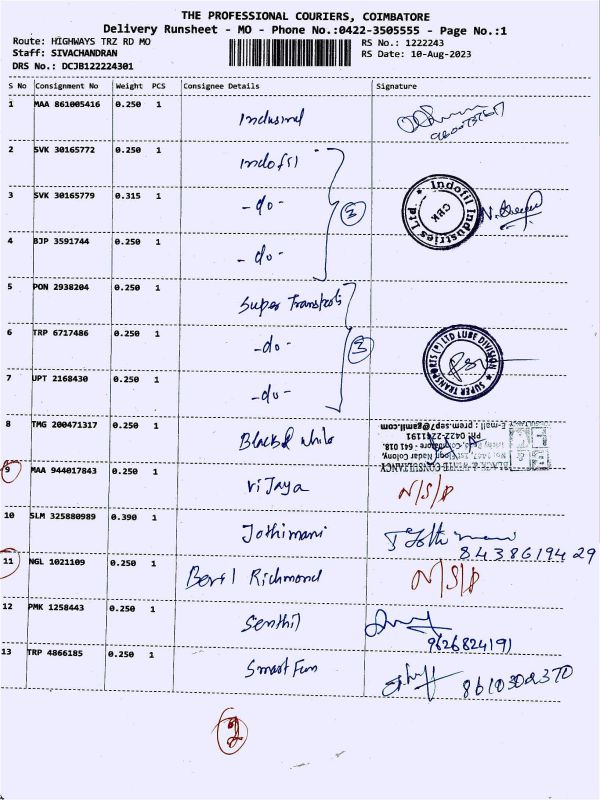 THE PROFESSIONAL COURIERS, COIMBATORE
Delivery Runsheet - MO - Phone No.:0422-3505555 - Page No.:1
Route: HIGHWAYS TRZ RD MO RS No.: 1222243
Staff: SIVACHANDRAN RS Date: 10-Aug-2023
DRS No.: DCJB122224301
S No Consignment No Weight PCS Consignee Details Signature
1 MAA 861005416 0.250 1
2 SVK 30165772 0.250 1 Indofil
3 SVK 30165779 0.315 1 -do- 3
Indofil Industries Ltd CBK
4 BJP 3591744 0.250 1 -do-
5 PON 2938204 0.250 1 Super Transports
6 TRP 6717486 0.250 1 -do- 3
SUPER TRANSPORTS (P) LTD LUBE DIVISION
7 UPT 2168430 0.250 1 -do-
8 TMG 200471317 0.250 1 Black & White
BLACK & WHITE CONSULTANCY
1st Floor, Nadar Colony,
Coimbatore - 641 018.
Ph: 0422-2241191
E-mail : prem.sep7@gamil.com
9 MAA 944017843 0.250 1 Vijaya N/S/D
10 SLM 325880989 0.390 1 Jothimani J Jothimani
8438619429
11 NGL 1021109 0.250 1 Beril Richmond N/S/D
12 PMK 1258443 0.250 1 Senthil
9626824191
13 TRP 4866185 0.250 1 Smart Fun 8610302370
2